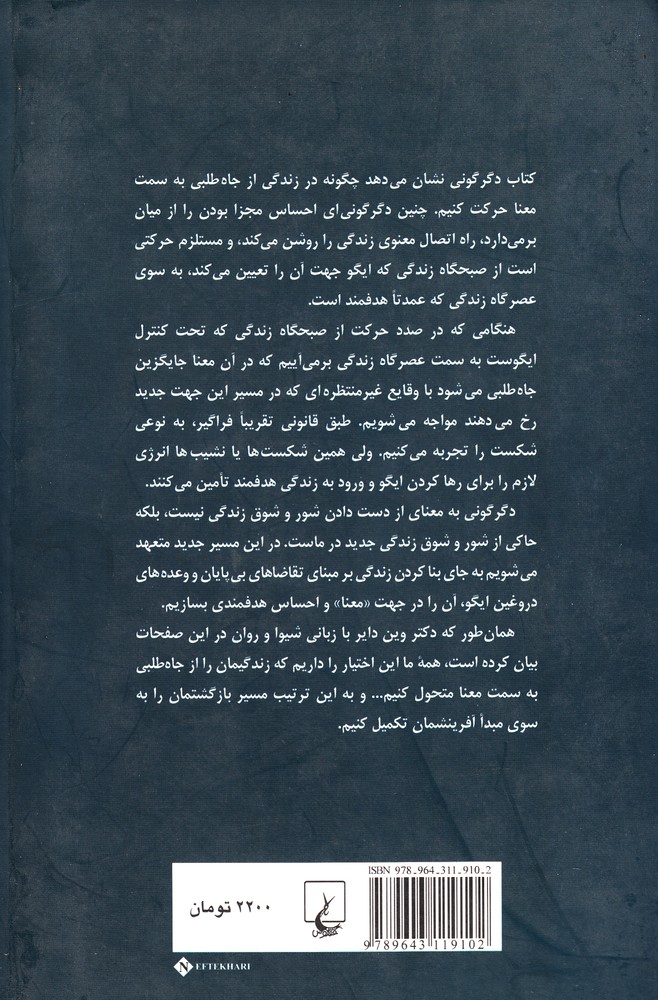 کتاب دگرگونی نشان می‌دهد چگونه در زندگی از جاه‌طلبی به سمت
معنا حرکت کنیم. چنین دگرگونی‌ای احساس مجزا بودن را از میان
برمی‌دارد، راه اتصال معنوی زندگی را روشن می‌کند، و مستلزم حرکتی
است از صبحگاه زندگی که ایگو جهت آن را تعیین می‌کند، به سوی
عصرگاه زندگی که عمدتاً هدفمند است.
هنگامی که در صدد حرکت از صبحگاه زندگی که تحت کنترل
ایگوست به سمت عصرگاه زندگی برمی‌آییم که در آن معنا جایگزین
جاه‌طلبی می‌شود با وقایع غیرمنتظره‌ای که در مسیر این جهت جدید
رخ می‌دهند مواجه می‌شویم. طبق قانونی تقریباً فراگیر، به نوعی
شکست را تجربه می‌کنیم. ولی همین شکست‌ها یا نشیب‌ها انرژی
لازم را برای رها کردن ایگو و ورود به زندگی هدفمند تأمین می‌کنند.
دگرگونی به معنای از دست دادن شور و شوق زندگی نیست، بلکه
حاکی از شور و شوق زندگی جدید در ماست. در این مسیر جدید متعهد
می‌شویم به جای بنا کردن زندگی بر مبنای تقاضاهای بی‌پایان و وعده‌های
دروغین ایگو، آن را در جهت «معنا» و احساس هدفمندی بسازیم.
همان‌طور که دکتر وین دایر با زبانی شیوا و روان در این صفحات
بیان کرده است، همهٔ ما این اختیار را داریم که زندگیمان را از جاه‌طلبی
به سمت معنا متحول کنیم... و به این ترتیب مسیر بازگشتمان را به
سوی مبدأ آفرینشمان تکمیل کنیم.
ISBN 978_964_311_910_2
۲۲۰۰ تومان
9 789643 119102
N EFTEKHARI